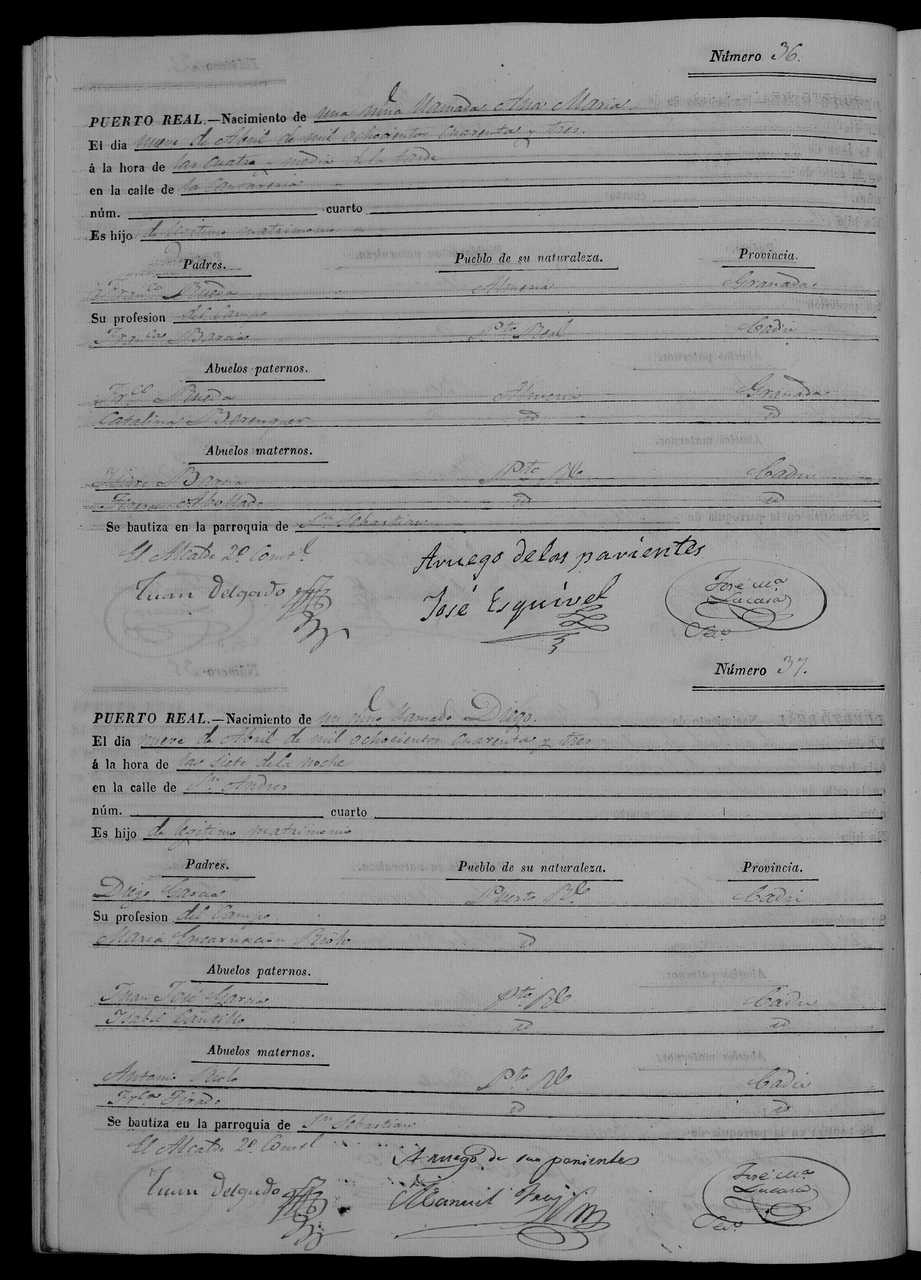 Número 36.
PUERTO REAL.—Nacimiento de una niña llamada Ana Maria.
El dia nueve de Abril de mil ochocientos cuarenta y tres.
á la hora de las cuatro y media de la tarde
en la calle de la
núm. cuarto
Es hijo de legitimo matrimonio
Padres. Pueblo de su naturaleza. Provincia.
Franco Rueda Almeria Granada
Su profesion del Campo
Frca Barca Pto Real Cadiz
Abuelos paternos.
Frco Rueda Almeria Granada
Catalina Berenguer id id
Abuelos maternos.
Isidro Barca Pto Rl Cadiz
id id
Se bautiza en la parroquia de Sn Sebastian
El Alcalde 2º Constl
Aruego delos parientes
Juan Delgado José Esquivel José Ma
Lucasa
Seco
Número 37.
PUERTO REAL.—Nacimiento de un niño llamado Diego.
El dia nueve de Abril de mil ochocientos cuarenta y tres
á la hora de las siete dela noche
en la calle de Sn Andres
núm. cuarto
Es hijo de legitimo matrimonio
Padres. Pueblo de su naturaleza. Provincia.
Diego Garcia Puerto Rl Cadiz
Su profesion del Campo
Maria Encarnacion id
Abuelos paternos.
Juan José Garcia Pto Rl Cadiz
Isabel Cantillo id id
Abuelos maternos.
Antonio Pto Rl Cadiz
Frca Tirado id id
Se bautiza en la parroquia de Sn Sebastian
El Alcalde 2º Constl
Aruego de sus parientes
Juan Delgado Manuel José Ma
Lucasa
Seco